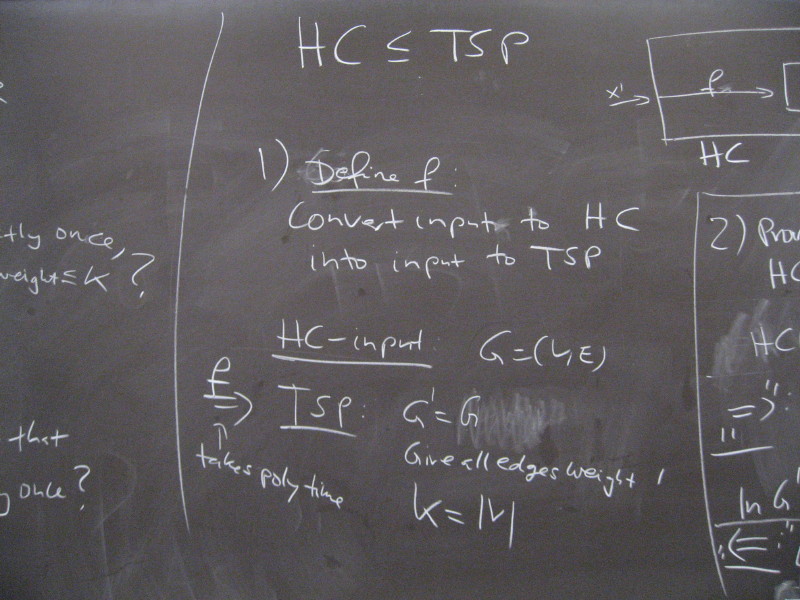 tly once,
weight ≤ K ?
that
once?
HC ≤ TSP
1) Define f:
Convert input to HC
into input to TSP
HC-input: G=(V,E)
f
⇒ TSP: G'=G
↑
takes poly time
Give all edges weight 1
K=|V|
x' f
HC
2) Prov
HC
HC
"⇒":
In G'
"⇐":